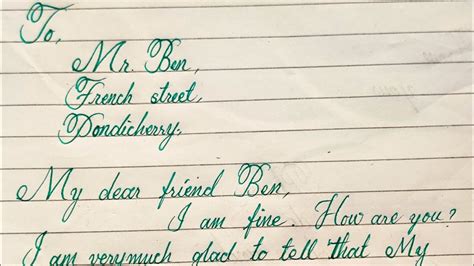 To,
Mr. Ben,
French street,
Pondicherry.
My dear friend Ben,
I am fine. How are you?
I am verymuch glad to tell that My